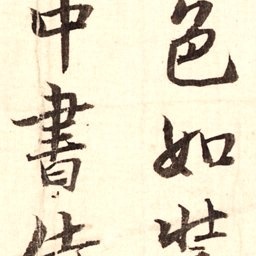 色如
中書